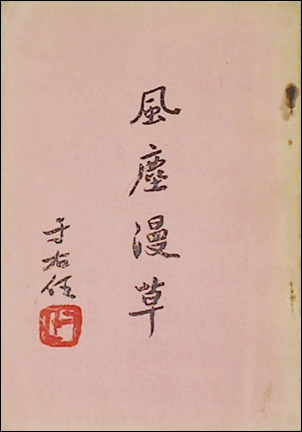 風塵漫草
于右任